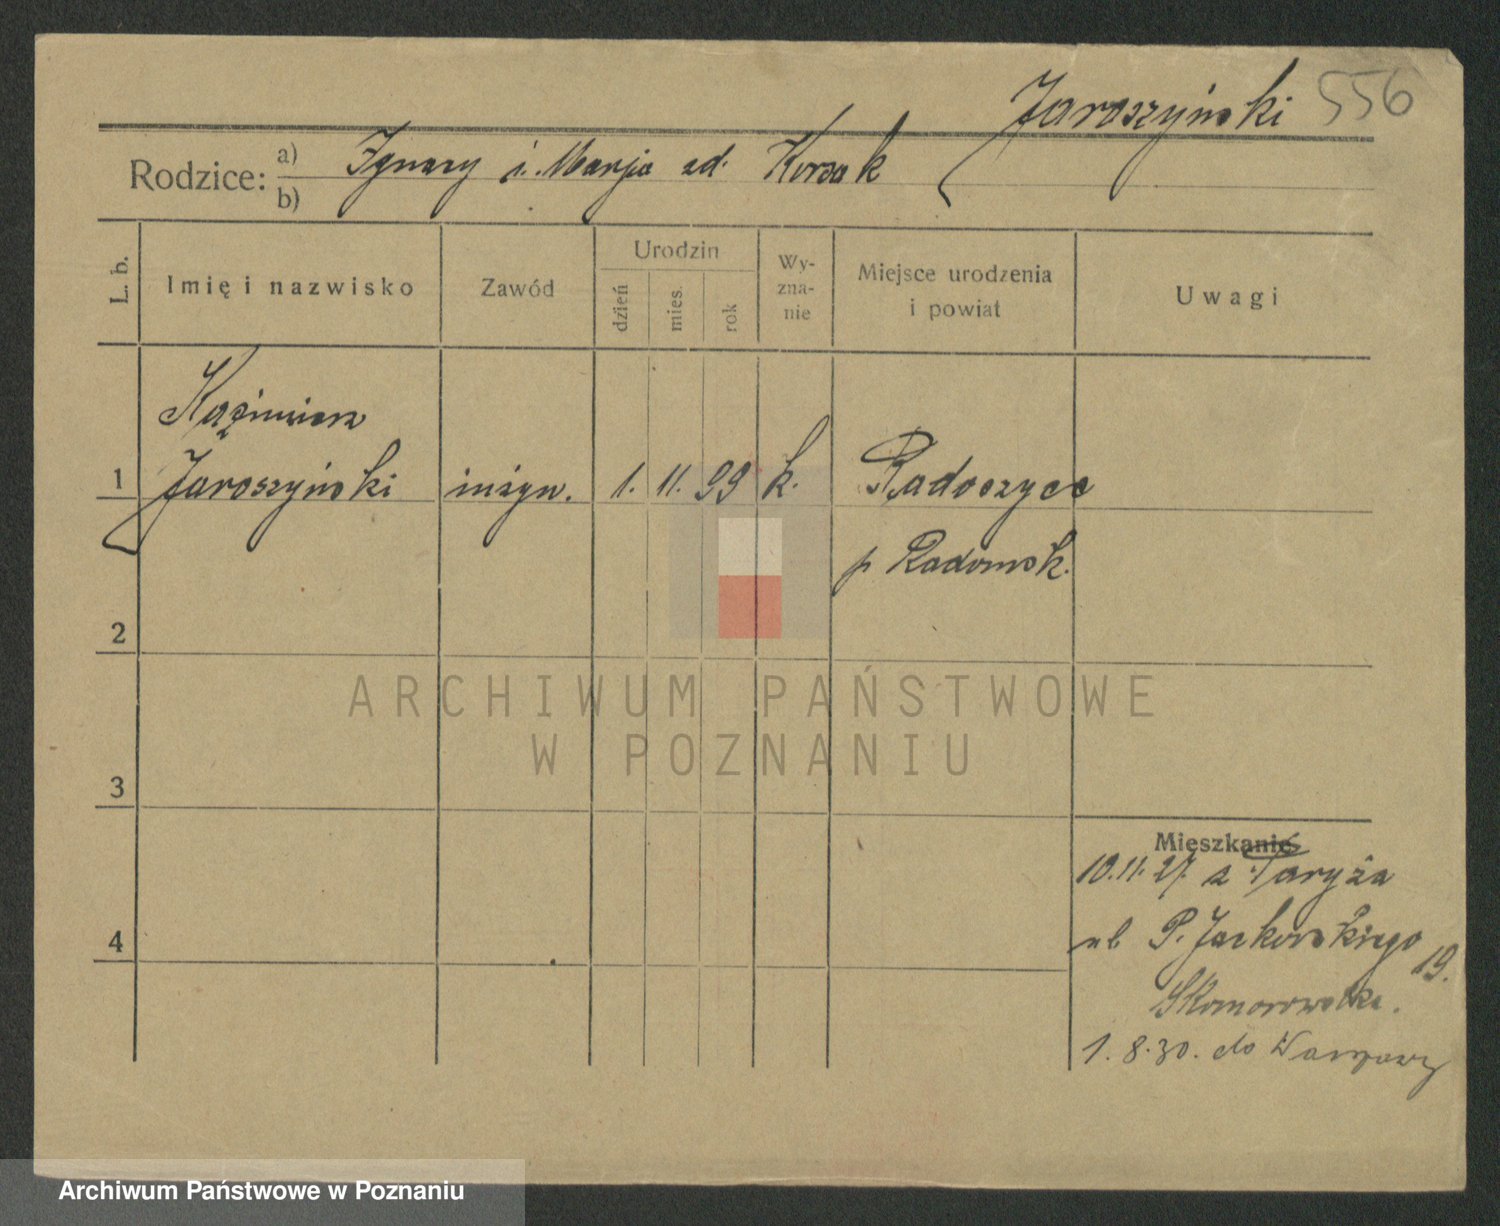 Jaroszyński 556
Rodzice: a) Ignacy i Marja zd. Korzak
b)
L. b. Imię i nazwisko Zawód Urodzin dzień mies. rok Wy-zna-nie Miejsce urodzenia i powiat Uwagi
Kazimierz
1 Jaroszyński inżyn. 1. 11. 99 k. Radoszyce
p Radomsk.
2
ARCHIWUM PAŃSTWOWE
W POZNANIU
3
Mieszkanie
10.11.27. z Paryża
ul P. Jackowskiego 19.
4
Skomorowska.
1.8.30. do Warszawy
Archiwum Państwowe w Poznaniu